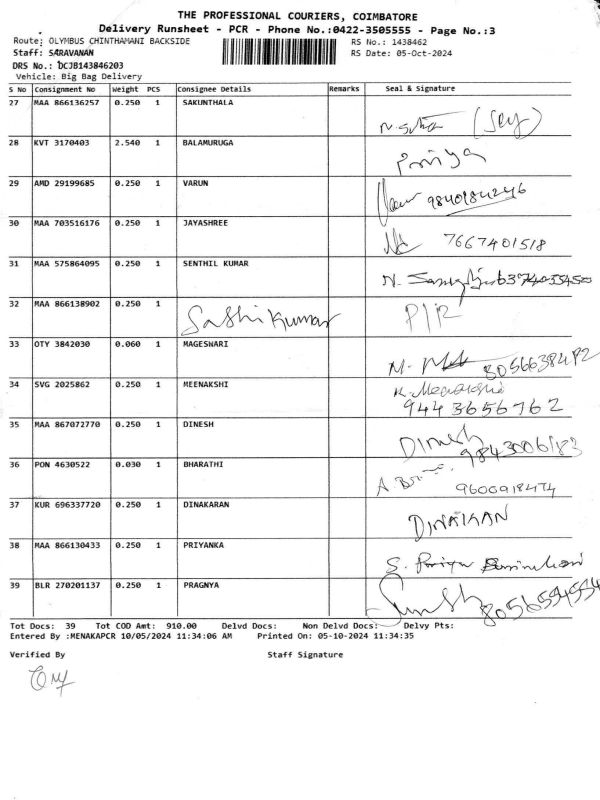 THE PROFESSIONAL COURIERS, COIMBATORE
Delivery Runsheet - PCR - Phone No.:0422-3505555 - Page No.:3
Route: OLYMBUS CHINTHAMANI BACKSIDE RS No.: 1438462
Staff: SARAVANAN RS Date: 05-Oct-2024
DRS No.: DCJB143846203
Vehicle: Big Bag Delivery
S No Consignment No Weight PCS Consignee Details Remarks Seal & Signature
27 MAA 866136257 0.250 1 SAKUNTHALA
28 KVT 3170403 2.540 1 BALAMURUGA Priya
29 AMD 29199685 0.250 1 VARUN 9840184246
30 MAA 703516176 0.250 1 JAYASHREE 7667401518
31 MAA 575864095 0.250 1 SENTHIL KUMAR
32 MAA 866138902 0.250 1 Sashi Kumar
33 OTY 3842030 0.060 1 MAGESWARI M.
34 SVG 2025862 0.250 1 MEENAKSHI K. Meenakshi
9443656762
35 MAA 867072770 0.250 1 DINESH Dinesh
9843006183
36 PON 4630522 0.030 1 BHARATHI A 9600918474
37 KUR 696337720 0.250 1 DINAKARAN
38 MAA 866130433 0.250 1 PRIYANKA S. Priya
39 BLR 270201137 0.250 1 PRAGNYA
Tot Docs: 39 Tot COD Amt: 910.00 Delvd Docs: Non Delvd Docs: Delvy Pts:
Entered By :MENAKAPCR 10/05/2024 11:34:06 AM Printed On: 05-10-2024 11:34:35
Verified By Staff Signature